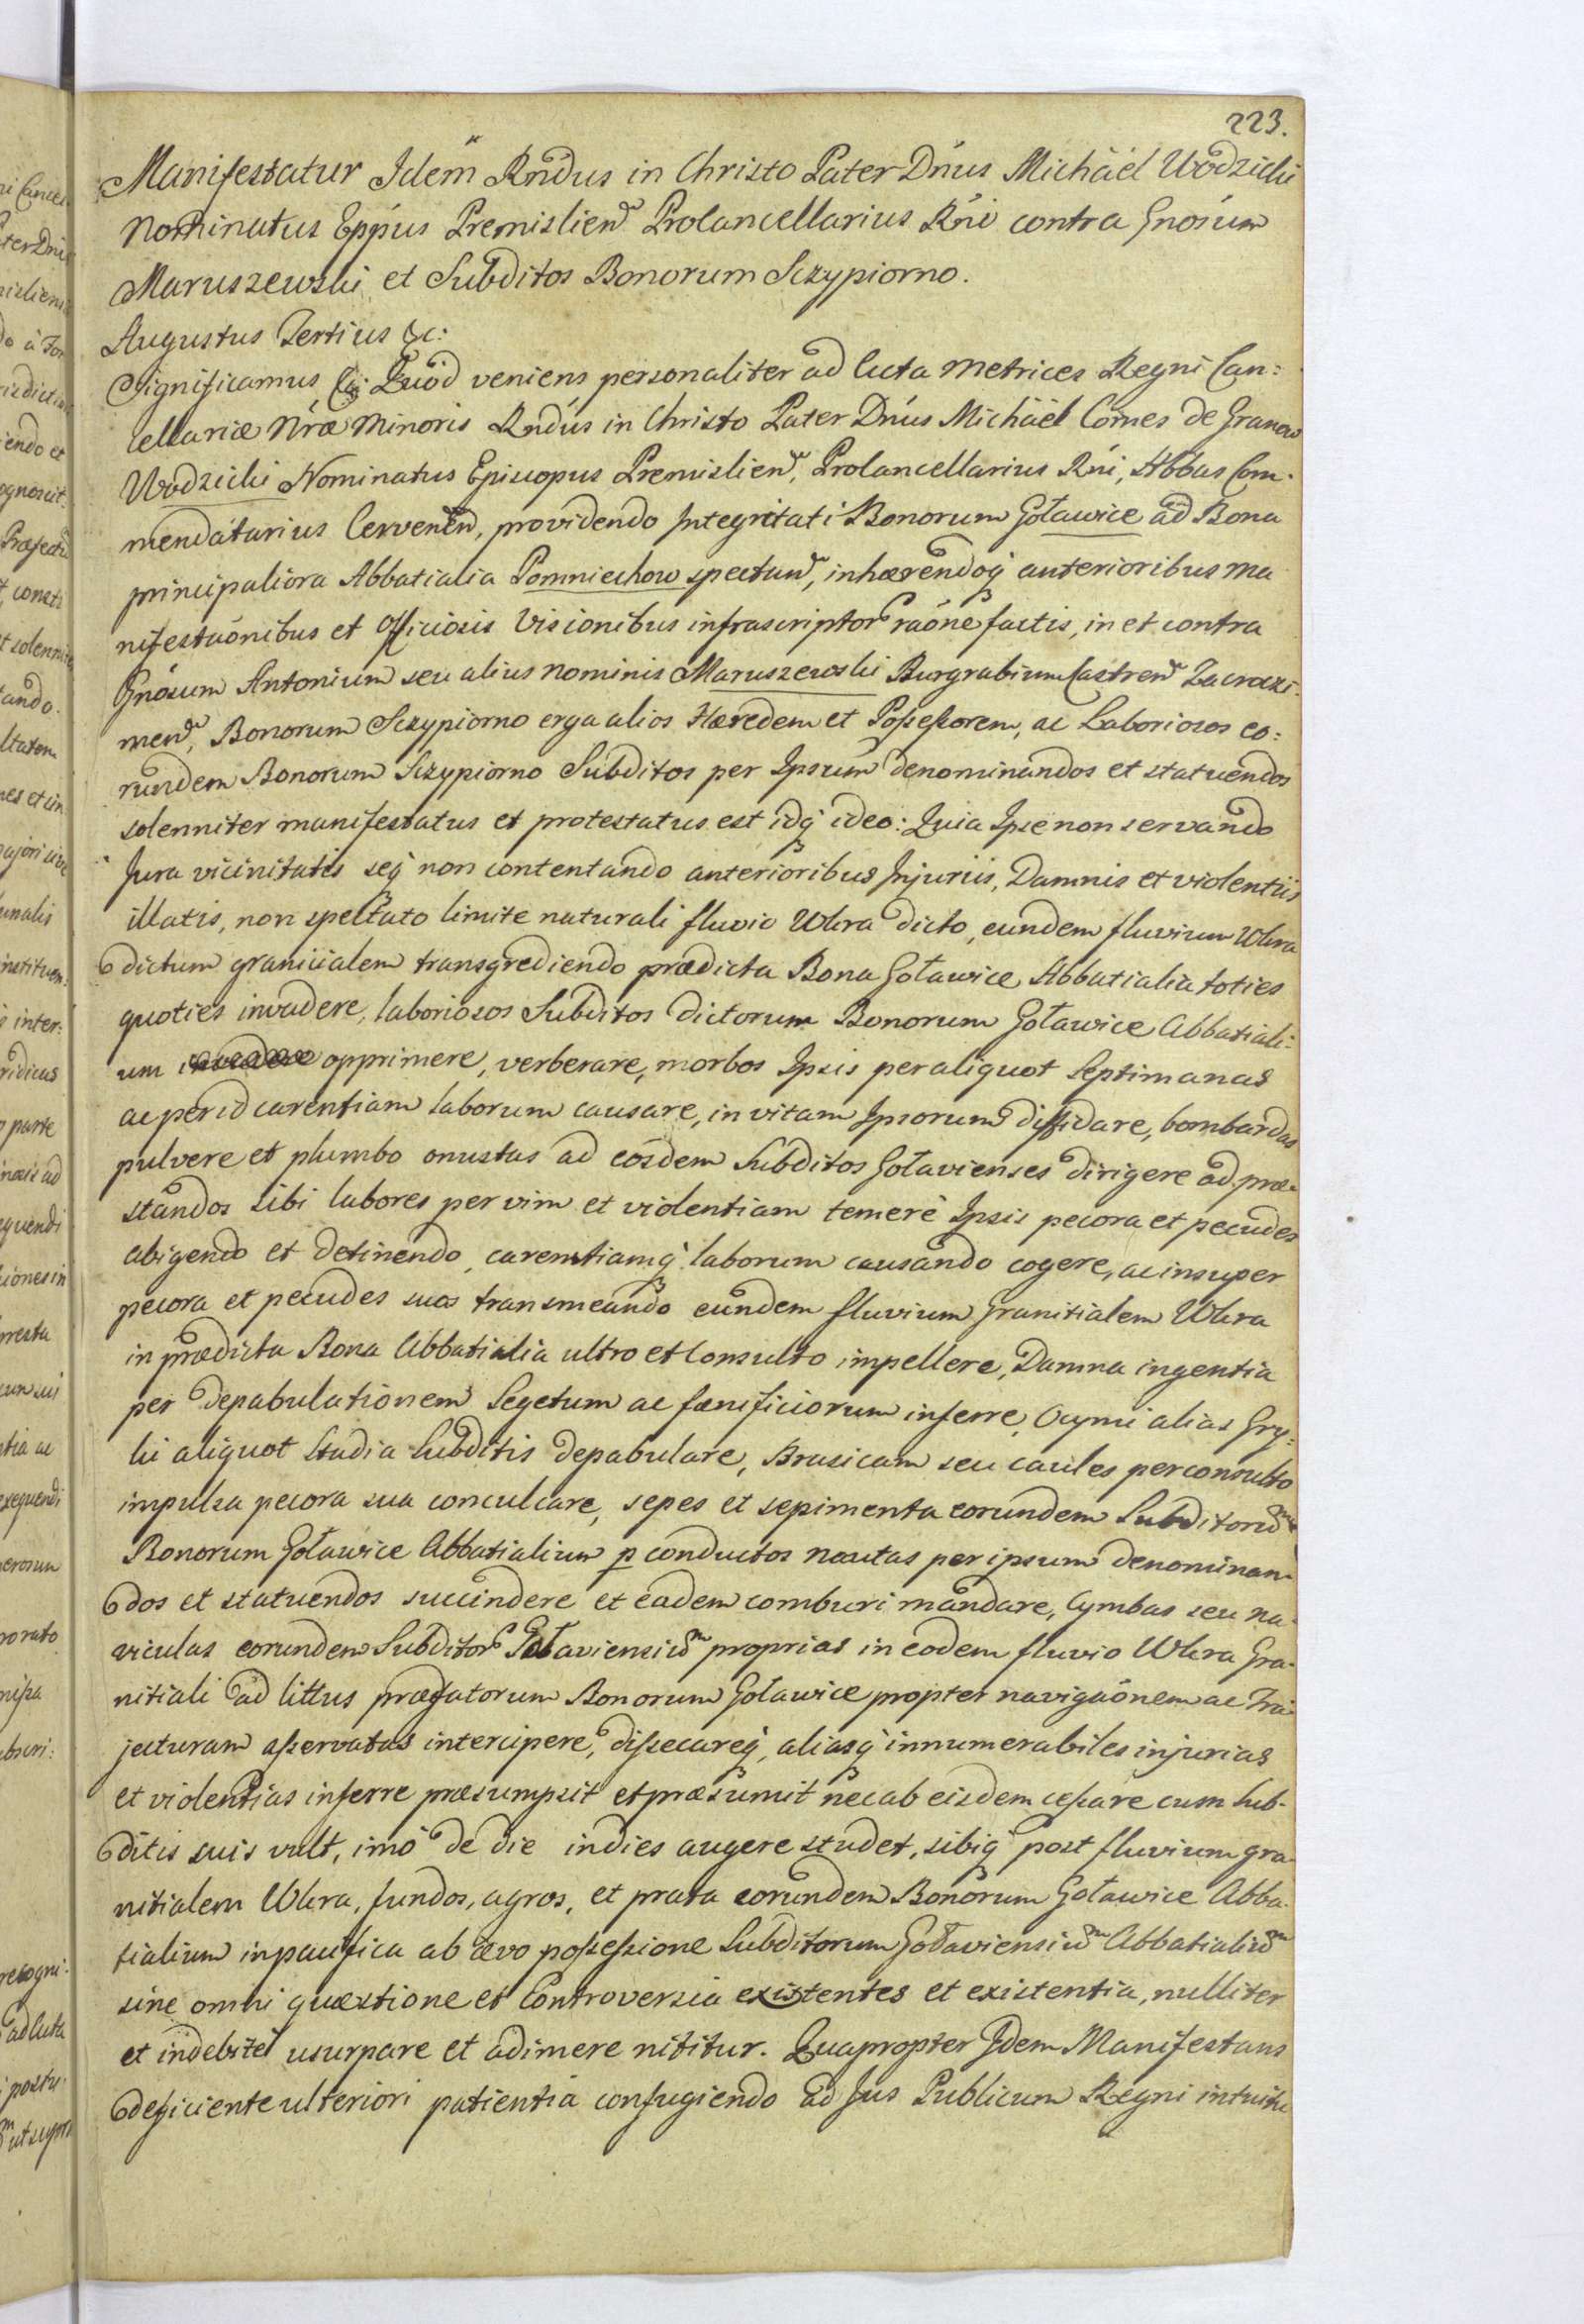 223.
Manifestatur Idem Rndus in Christo Pater Dnus Michäel Wodzicki
Nominatus Eppus Premislien Procancellarius Rni contra Gnosum
Maruszewski et Subditos Bonorum Sczypiorno.
Augustus Tertius &c:
Significamus &c: Quod veniens personaliter ad Acta Metrices Regni Can:
cellariæ Nræ Minoris Rndus in Christo Pater Dnus Michäel Comes de Granow
Wodzicki Nominatus Episcopus Premislien, Procancellarius Rni, Abbas Com-
mendatarius Cervenen, providendo Integritati Bonorum Goławice ad Bona
principaliora Abbatialia Pomniechow spectan, inhærendoq anterioribus ma
nifestaonibus et Officiosis Visionibus infrascriptor raõne factis, in et contra
Gnosum Antonium seu alius nominis Maruszewski Burgrabium Castren Zacrozi-
men, Bonorum Sczypiorno erga alios Hæredem et Possessorem, ac Laboriosos eo:
rundem Bonorum Sczypiorno Subditos per Ipsum denominandos et statuendos
solenniter manifestatus et protestatus est idq ideo: Quia Ipse non servando
Jura vicinitatis seq non contentando anterioribus Injuriis, Damnis et violentiis
illatis, non spectato limite naturali fluvio Wkra dicto, eundem fluvium Wkra
dictum granicialem transgrediendo prædicta Bona Goławice Abbatialia toties
quoties invadere, laboriosos Subditos dictorum Bonorum Goławice Abbatiali:
um invadere opprimere, verberare, morbos Ipsis per aliquot Septimanas
ac per id carentiam laborum causare, in vitam Ipsorum diffidare, bombardas
pulvere et plumbo onustas ad eosdem Subditos Goławienses dirigere ad præ-
standos sibi labores per vim et violentiam temerè Ipsis pecora et pecudes
abigendo et detinendo, carentiamq laborum causando cogere, ac insuper
pecora et pecudes suas transmeando eundem fluvium Granitialem Wkra
in prædicta Bona Abbatialia ultro et Consulto impellere, Damna ingentia
per depabulationem Segetum ac fænificiorum inferre, Ocymi alias Gry-
ki aliquot Stadia Subditis depabulare, Brasicam seu caules per consulto
impulsa pecora sua conculcare, sepes et sepimenta eorundem Subditorum
Bonorum Goławice Abbatialium p conductos nautas per ipsum denominan-
dos et statuendos succindere et eadem comburi mandare, Cymbas seu na-
viculas eorundem Subditor Goławiensium proprias in eodem fluvio Wkra Gra-
nitiali ad littus præfatorum Bonorum Goławice propter navigaõnem ac Tra
jecturam asservatas intercipere, dissecareq, aliasq innumerabiles injurias
et violentias inferre præsumpsit et præsumit nec ab eisdem cessare cum Sub-
ditis suis vult, imò de die indies augere studet, sibiq post fluvium gra-
nitialem Wkra, fundos, agros, et prata eorundem Bonorum Goławice Abba-
tialium in pacifica ab ævo possessione Subditorum Goławiensium Abbatialium
sine omni quæstione et Controversia existentes et existentia, nulliter
et indebitè usurpare et adimere nititur. Quapropter Idem Manifestans
deficiente ulteriori patientiâ confugiendo ad Jus Publicum Regni intuitu